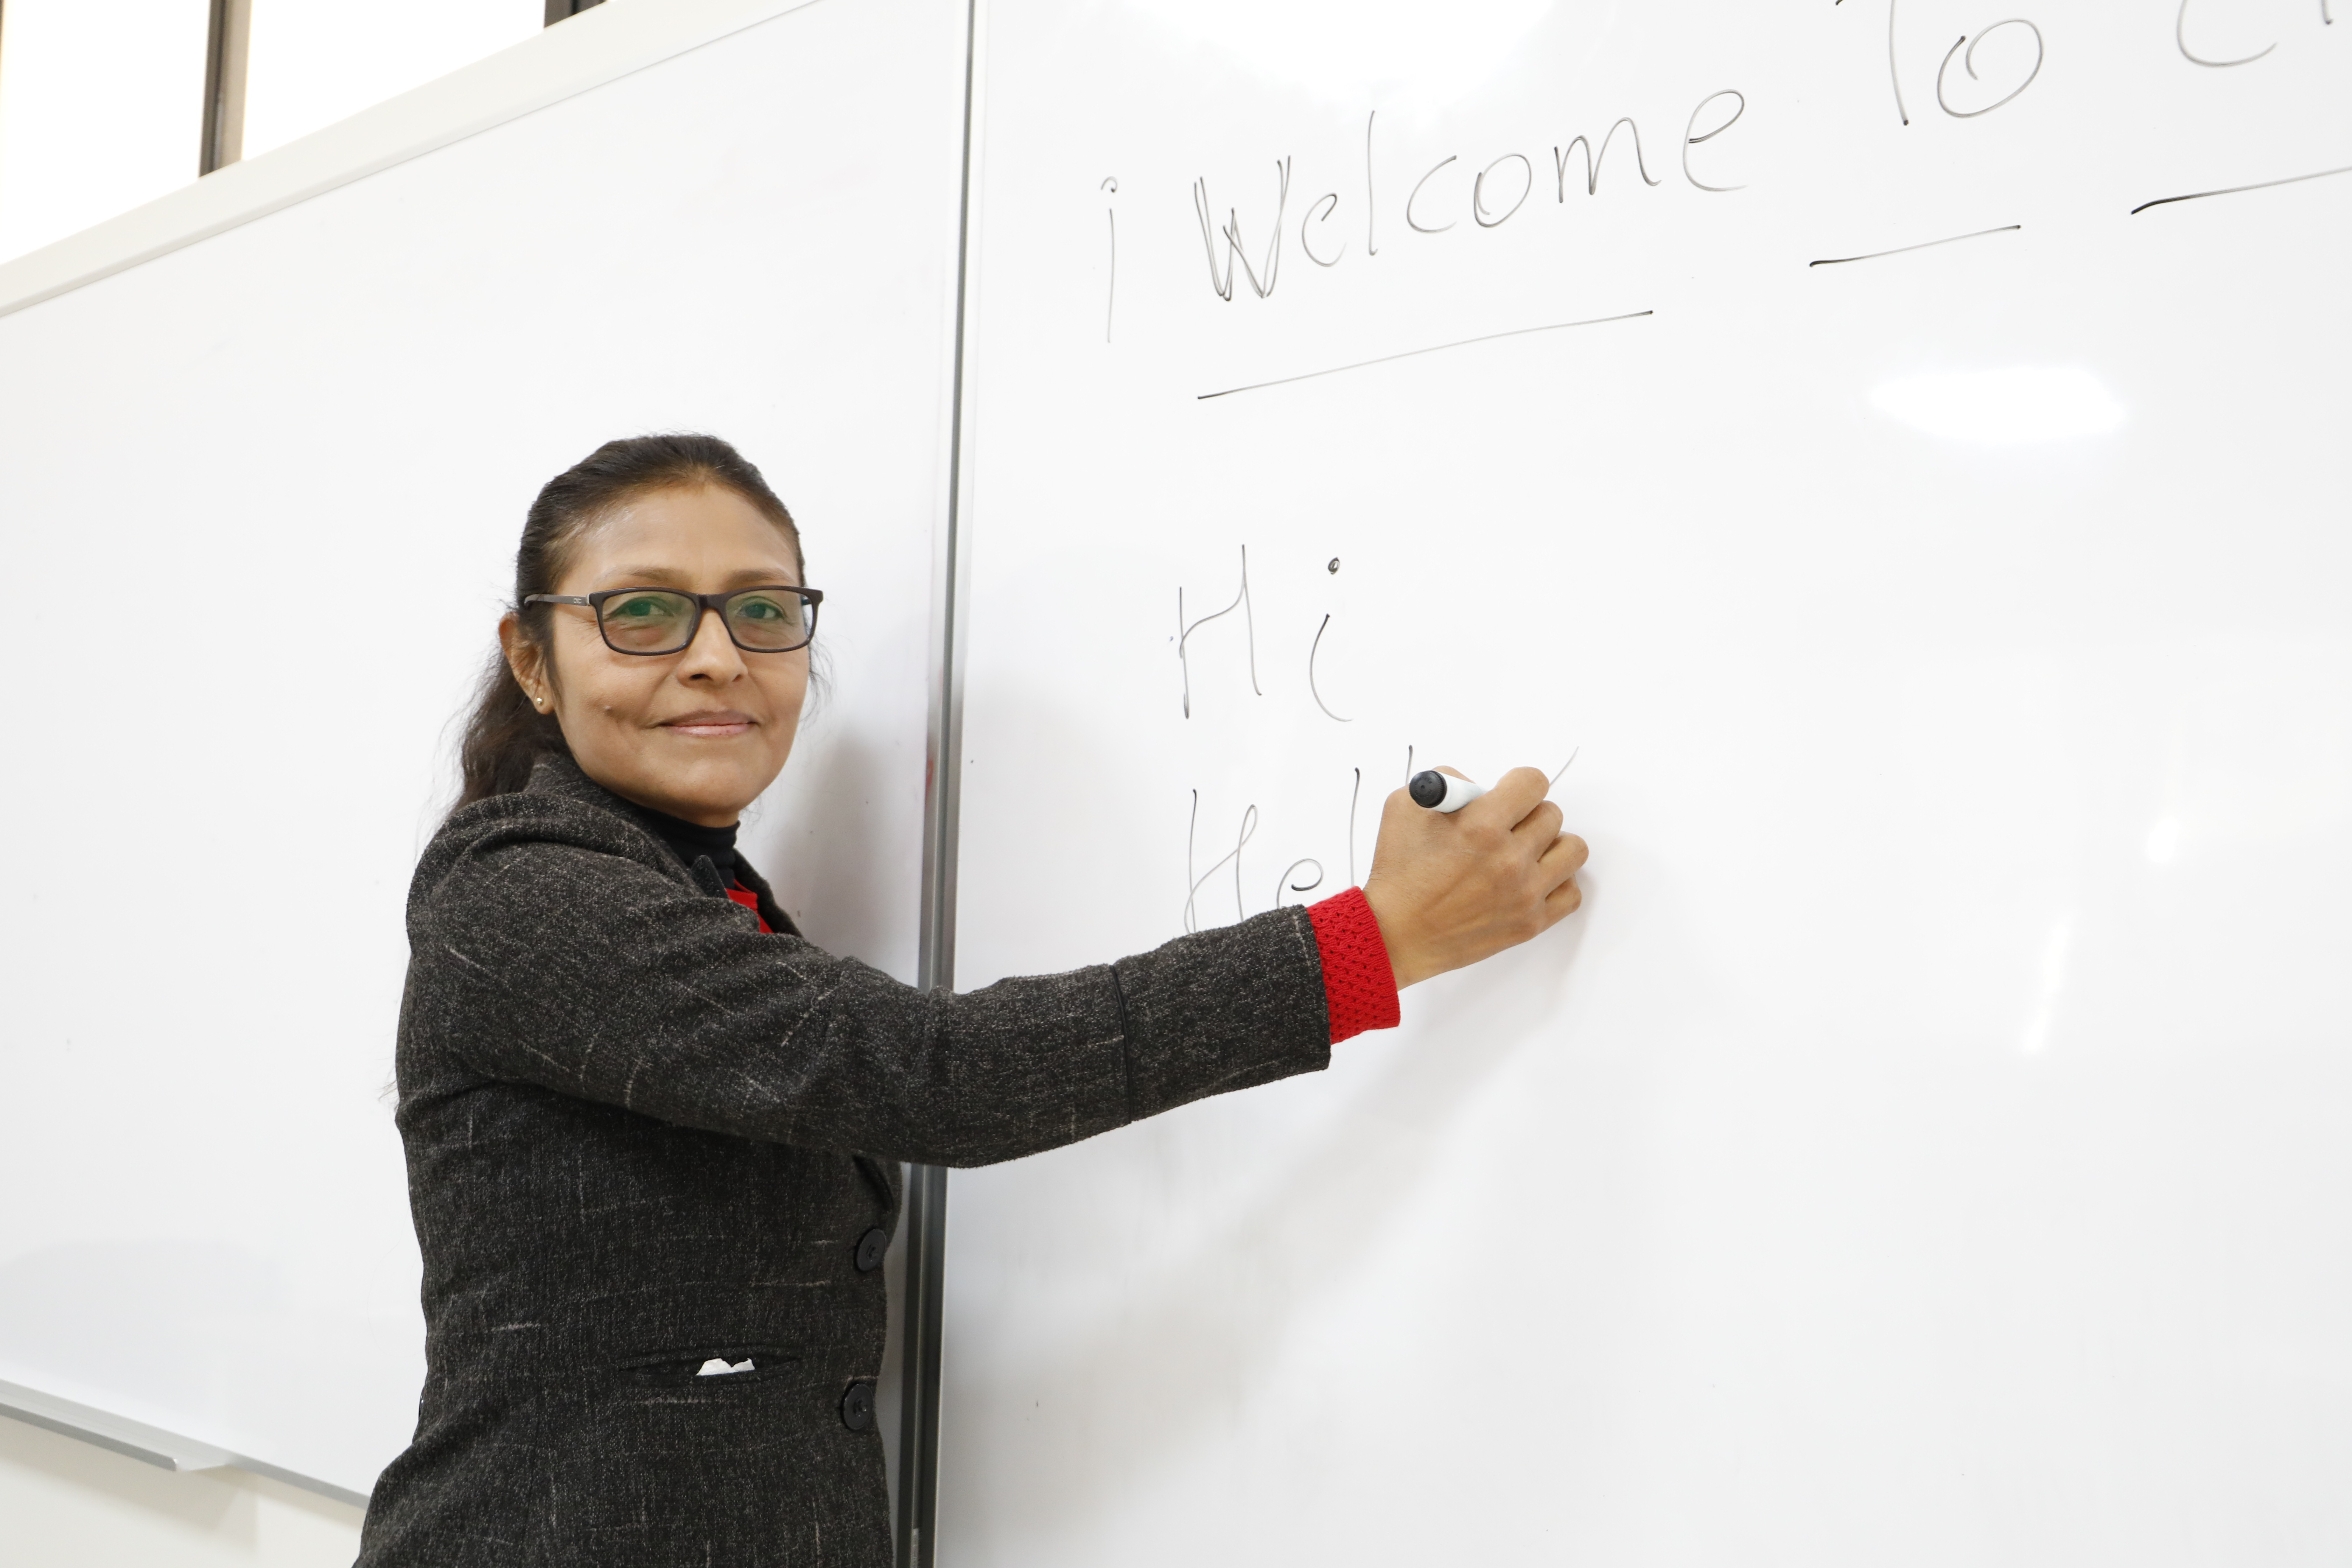 ¡ Welcome To
Hi
Hel